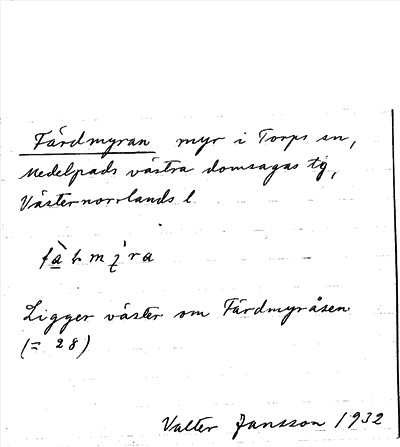 Färdmyran myr i Torps sn,
Medelpads västra domsagas tg,
Västernorrlands l.
Ligger väster om Färdmyråsen
(= 28)
Valter Jansson 1932